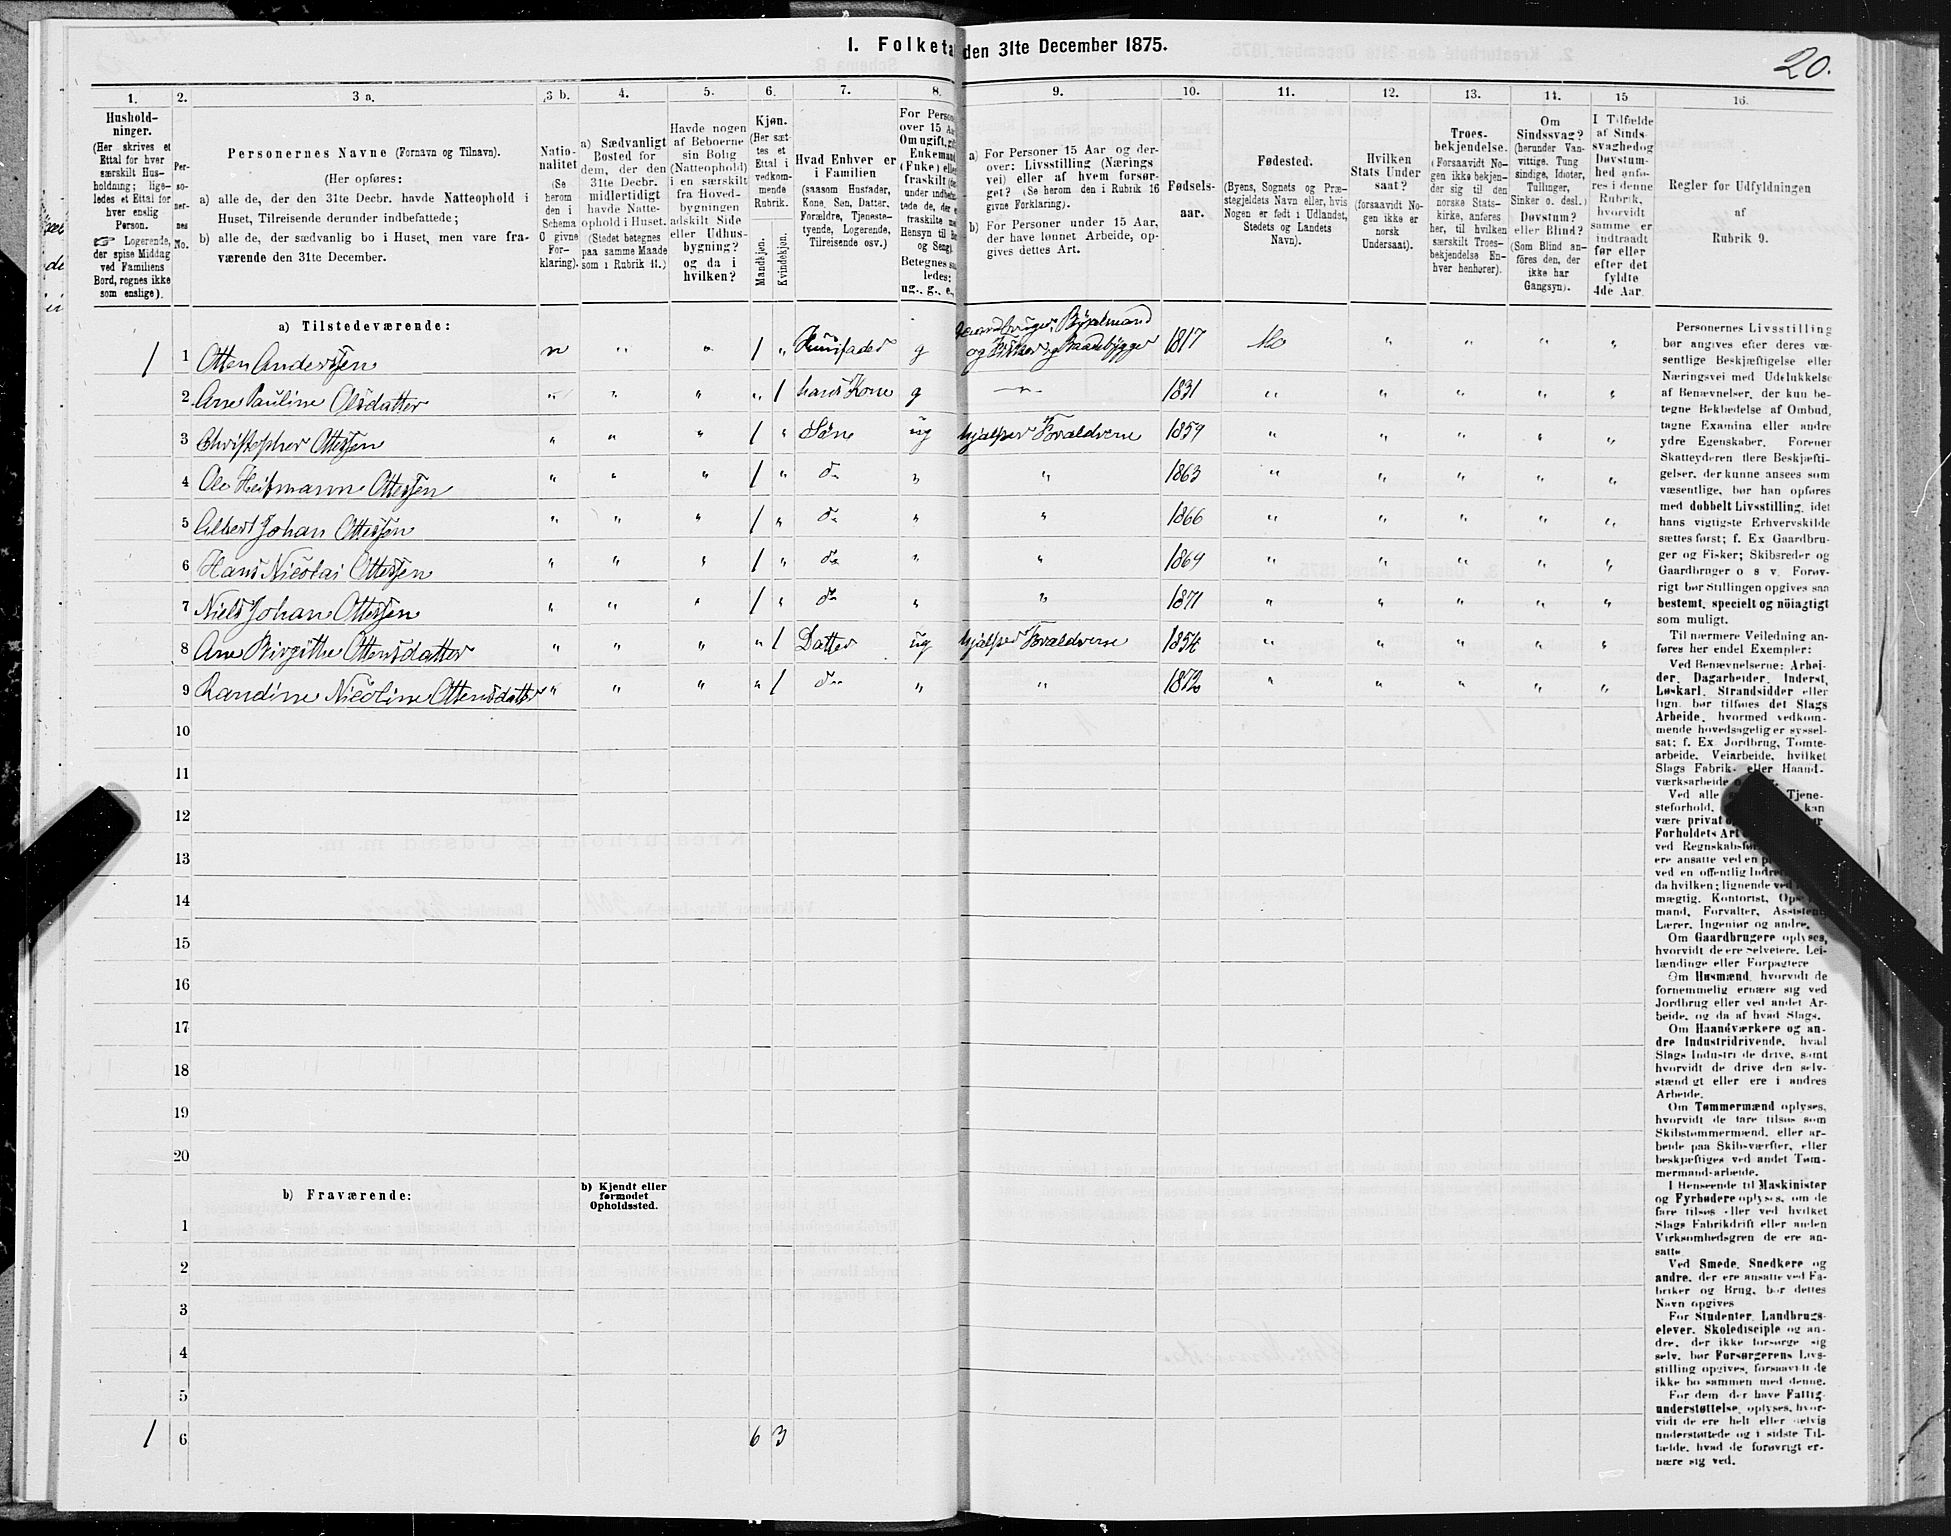 I. Folketa den 31te December 1875.
20.
1. 2. 3 a. 3 b. 4. 5. 6. 7. 8. 9. 10. 11. 12. 13. 14. 15 16.
Hushold-
ninger.
(Her skrives et
Ettal for hver
særskilt Hus-
holdning; lige-
ledes et Ettal for
hver enslig
Person.
☞ Logerende,
der spise Middag
ved Familiens
Bord, regnes ikke
som enslige).
Per-
so-
ner-
nes
No.
Personernes Navne (Fornavn og Tilnavn).
(Her opføres:
a) alle de, der den 31te Decbr. havde Natteophold i
Huset, Tilreisende derunder indbefattede;
b) alle de, der sædvanlig bo i Huset, men vare fra-
værende den 31te December.
Natio-
nalitet
(Se
herom
den i
Schema
O givne
For-
klaring).
a) Sædvanligt
Bosted for
dem, der den
31te Decbr.
midlertidigt
havde Natte-
ophold i Huset.
(Stedet betegnes
paa samme Maade
som i Rubrik 11.)
Havde nogen
af Beboerne
sin Bolig
(Natteophold)
i en særskilt
fra Hoved-
bygningen
adskilt Side
eller Udhus-
bygning?
og da i
hvilken?
Kjøn.
(Her sæt-
tes et
Ettal i
vedkom-
mende
Rubrik.
Mandkjøn.
Kvindekjøn.
Hvad Enhver er
i Familien
(saasom Husfader,
Kone, Søn, Datter,
Forældre, Tjeneste-
tyende, Logerende,
Tilreisende osv.)
For Person
over 15 Aa
Om ugift, gif
Enkemand
(Enke) elle
fraskilt
under indbefat
tede de, der e
fraskilte
Hensyn til Bo
og Seng).
Betegnes saa
ledes:
ug., g., e.,
a) For Personer 15 Aar og der-
over: Livsstilling (Nærings
vei) eller af hvem forsør-
get? (Se herom den i Rubrik 16
givne Forklaring).
b) For Personer under 15 Aar,
der have lønnet Arbeide, op-
gives dettes Art.
Fødsels-
aar.
Fødested.
(Byens, Sognets og Præ-
stegjeldets Navn eller, hvis
Nogen er født i Udlandet,
Stedets og Landets
Navn).
Hvilken
Stats Under
saat?
(forsaavidt No-
gen ikke er
norsk
Undersaat).
Troes-
bekjendelse.
(Forsaavidt No-
gen ikke bekjen-
der sig til den
norske Stats-
kirke, anføres
her, til hvilken
særskilt Troes-
bekjendelse En-
hver henhører).
Om
Sindssvag?
(herunder Van-
vittige, Tung
sindige, Idioter,
Tullinger,
Sinker o. desl.)
Døvstum?
eller Blind?
(Som Blind an-
føres den, der
ikke har
Gangsyn).
I Tilfælde
af Sinds-
svaghed og
Døvstum-
hed anfø-
res i denne
Rubrik,
hvorvidt
samme er
indtraadt
før eller
efter det
fyldte
4de Aar.
Regler for Udfyldningen
af
Rubrik 9.
a) Tilstedeværende:
1 1 Otten Anderssen n " " 1 " Huusfader g Gaardbruger, Bøxelmand
og Fisker og Baadebygger 1817 Mo " " " "
2 Ane Pauline Olsdatter " " " " 1 hans Kone g — " — 1831 " " " " "
3 Christopher Ottessen " " " 1 " Søn ug hjælper Forældrene 1859 " " " " "
4 Ole Heitmann Ottessen " " " 1 " do " " 1863 " " " " "
5 Albert Johan Ottessen " " " 1 " do " " 1866 " " " " "
6 Hans Nicolai Ottessen " " " 1 " do " " 1869 " " " " "
7 Niels Johan Ottessen " " " 1 " do " " 1871 " " " " "
8 Ane Birgithe Ottensdatter " " " " 1 Datter ug hjælper Forældrene 1856 " " " " "
9 Randine Nicoline Ottensdatter " " " " 1 do " " 1872 " " " " "
10
11
12
13
14
15
16
17
18
19
20
b) Fraværende:
b) Kjendt eller
formodet
Opholdssted.
1
2
3
4
5
1 6 6 3
Personernes Livsstilling
bør angives efter deres væ-
sentlige Beskjæftigelse eller
Næringsvei med Udelukkelse
af Benævnelser, der kun be-
tegne Beklædelse af Ombud,
tagne Examina eller andre
ydre Egenskaber. Forener
Skatteyderen flere Beskjæfti-
gelser, der kunne ansees som
væsentlige, bør han opføres
med dobbelt Livsstilling, idet
hans vigtigste Erhvervskilde
sættes først; f. Ex Gaardbru-
ger og Fisker; Skibsreder og
Gaardbruger o s v. Forøv-
rigt bør Stillingen opgives saa
bestemt, specielt og nöiagtigt
som muligt.
Til nærmere Veiledning an-
føres her endel Exempler:
Ved Benævnelserne: Arbei-
der, Dagarbeider, Inderst,
Løskarl, Strandsidder eller
lign. bør tilføies det Slags
Arbeide, hvormed vedkom-
mende hovedsagelig er syssel-
sat; f. Ex Jordbrug, Tomte-
arbeide, Veiarbeide, hvilket
Slags Fabrik- eller Haand-
værksarbeide
Ved alle Tjene-
steforhold, kan
være privat
Forholdets Art
ved Regnskabs
ere ansatte ved en
ved en offentlig Indret
da hvilken; lignende ved
mægtig, Kontorist, Ops
mand, Forvalter, Assistent,
Lærer, Ingeniør og andre.
Om Gaardbrugere oplyses,
hvorvidt de ere Selveiere, Lei-
lændinge eller Forpagtere
Om Husmænd, hvorvidt de
fornemmelig ernære sig ved
Jordbrug eller ved andet Ar-
beide, og da af hvad Slags.
Om Haandværkere og an-
dre Industridrivende, hvad
Slags Industri de drive, samt
hvorvidt de drive den selv-
stændigt eller ere i andres
Arbeide.
Om Tømmermænd oplyses,
hvorvidt de fare tilsøs som
Skibstømmermænd, eller ar-
beide paa Skibsværfter, eller
beskjæftiges ved andet Tøm-
mermand-arbeide.
I Henseende til Maskinister
og Fyrbødere oplyses, om de
fare tilsøs eller ved hvilket
Slags Fabrikdrift eller anden
Virksomhedsgren de ere an-
satte
Ved Smede, Snedkere og
andre, der ere ansatte ved Fa-
briker og Brug, bør dettes
Navn opgives
For Studenter, Landbrugs-
elever, Skoledisciple og an-
dre, der ikke forsørge sig
selv, bør Forsørgerens Livs-
stilling opgives, forsaavidt de
ikke bo sammen med denne.
For dem der have Fattig-
understøttelse, oplyses, hvor-
vidt de ere helt eller delvis
understøttede og i sidste Til-
fælde, hvad de forøvrigt er-
nære sig ved.